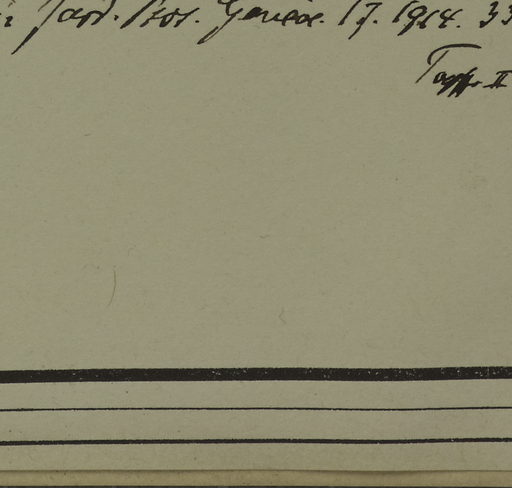 Jard. Bot. Genève. 17. 1914. 33
II